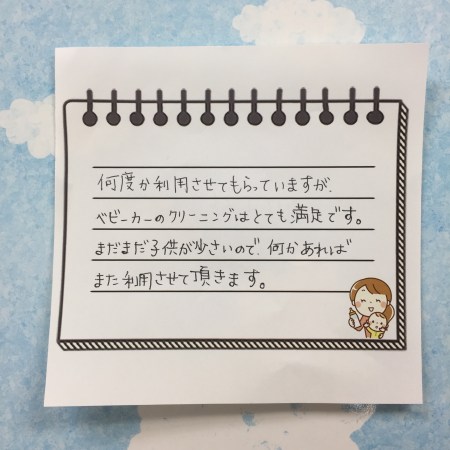 何度か利用させてもらっていますが、
ベビーカーのクリーニングはとても満足です。
まだまだ子供が小さいので、何かあれば
また利用させて頂きます。